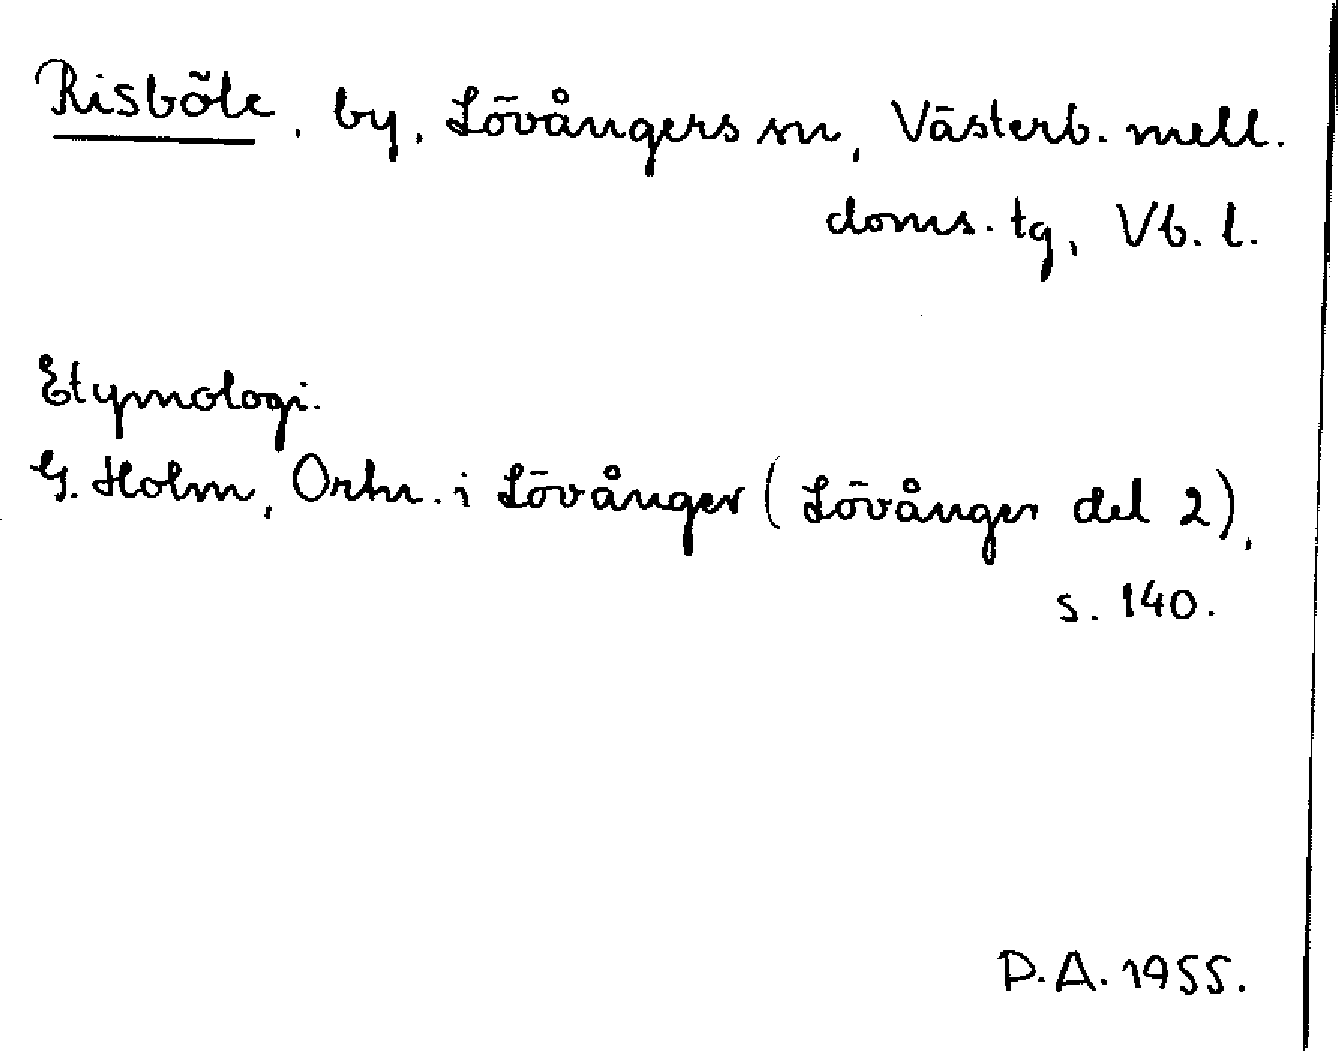 Risböle, by, Lövångers sn, Västerb. mell.
doms. tg, Vb. l.
Etymologi.
G. Holm, Ortn. i Lövånger (Lövånger del 2),
s. 140.
P.A. 1955.